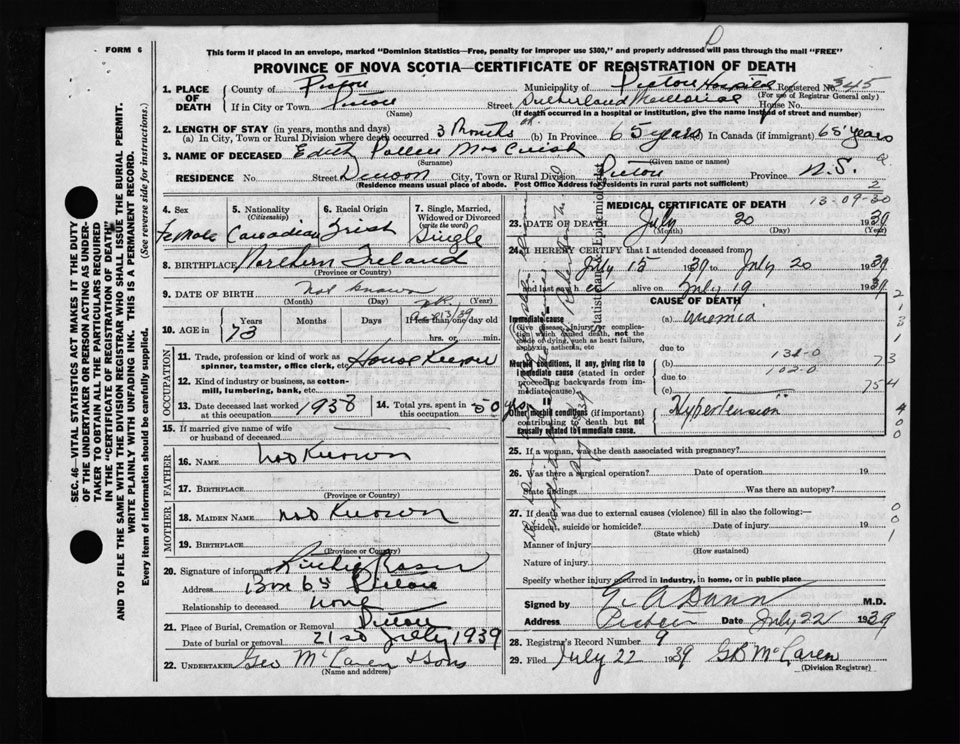 FORM 6
This form if placed in an envelope, marked "Dominion Statistics—Free, penalty for improper use $300," and properly addressed will pass through the mail "FREE"
PROVINCE OF NOVA SCOTIA—CERTIFICATE OF REGISTRATION OF DEATH
SEC. 46—VITAL STATISTICS ACT MAKES IT THE DUTY
OF THE UNDERTAKER OR PERSON ACTING AS UNDER-
TAKER TO OBTAIN ALL THE PARTICULARS REQUIRED
IN THE "CERTIFICATE OF REGISTRATION OF DEATH"
AND TO FILE THE SAME WITH THE DIVISION REGISTRAR WHO SHALL ISSUE THE BURIAL PERMIT.
WRITE PLAINLY WITH UNFADING INK. THIS IS A PERMANENT RECORD.
Every item of information should be carefully supplied. (See reverse side for instructions.)
1. PLACE OF DEATH
County of Pictou Municipality of Pictou Hospital Registered No. 345
(For use of Registrar General only)
If in City or Town Pictou Street Sutherland Memorial House No.
(Name) (If death occurred in a hospital or institution, give the name instead of street and number)
2. LENGTH OF STAY (in years, months and days)
(a) In City, Town or Rural Division where death occurred 3 Months (b) In Province 65 years In Canada (if immigrant) 65 years
3. NAME OF DECEASED Edith
(Surname) (Given name or names)
RESIDENCE No. Street Denoon City, Town or Rural Division Pictou Province N.S.
(Residence means usual place of abode. Post Office Address for residents in rural parts not sufficient)
4. Sex 5. Nationality (Citizenship) 6. Racial Origin 7. Single, Married, Widowed or Divorced (write the word)
Female Canadian Irish Single
8. BIRTHPLACE Northern Ireland
(Province or Country)
9. DATE OF BIRTH Not known
(Month) (Day) (Year)
10. AGE in Years Months Days If less than one day old
73 hrs. or min.
OCCUPATION
11. Trade, profession or kind of work as spinner, teamster, office clerk, etc. House Keeper
12. Kind of industry or business, as cotton-mill, lumbering, bank, etc.
13. Date deceased last worked at this occupation 1938 14. Total yrs. spent in this occupation 50 yrs
15. If married give name of wife or husband of deceased
FATHER
16. NAME Not Known
17. BIRTHPLACE
(Province or Country)
MOTHER
18. MAIDEN NAME Not Known
19. BIRTHPLACE
(Province or Country)
20. Signature of informant
Address Box 64 Pictou
Relationship to deceased none
21. Place of Burial, Cremation or Removal Pictou
Date of burial or removal 21st July 1939
22. UNDERTAKER Geo McLaren & Sons
(Name and address)
MEDICAL CERTIFICATE OF DEATH
23. DATE OF DEATH July 20 1939
(Month) (Day) (Year)
24. I HEREBY CERTIFY that I attended deceased from
July 15 1939 to July 20 1939
and last saw h er alive on July 19 1939
CAUSE OF DEATH
Immediate cause (a) Uremia
(Give disease, injury or complication which caused death, not the mode of dying, such as heart failure, asphyxia, asthenia, etc
due to
Morbid conditions, if any, giving rise to immediate cause (stated in order proceeding backwards from immediate cause). (b) 132-0
due to 102-0
(c)
Other morbid conditions (if important) contributing to death but not causally related to immediate cause. Hypertension
73
754
25. If a woman, was the death associated with pregnancy?
26. Was there a surgical operation? Date of operation 19
State findings Was there an autopsy?
27. If death was due to external causes (violence) fill in also the following:—
Accident, suicide or homicide? Date of injury 19
(State which)
Manner of injury
(How sustained)
Nature of injury
Specify whether injury occurred in industry, in home, or in public place
Signed by G. A. Dunn M.D.
Address Pictou Date July 22 1939
28. Registrar's Record Number 9
29. Filed July 22 1939 GB McLaren
(Division Registrar)
Statistician & Epidemiologist